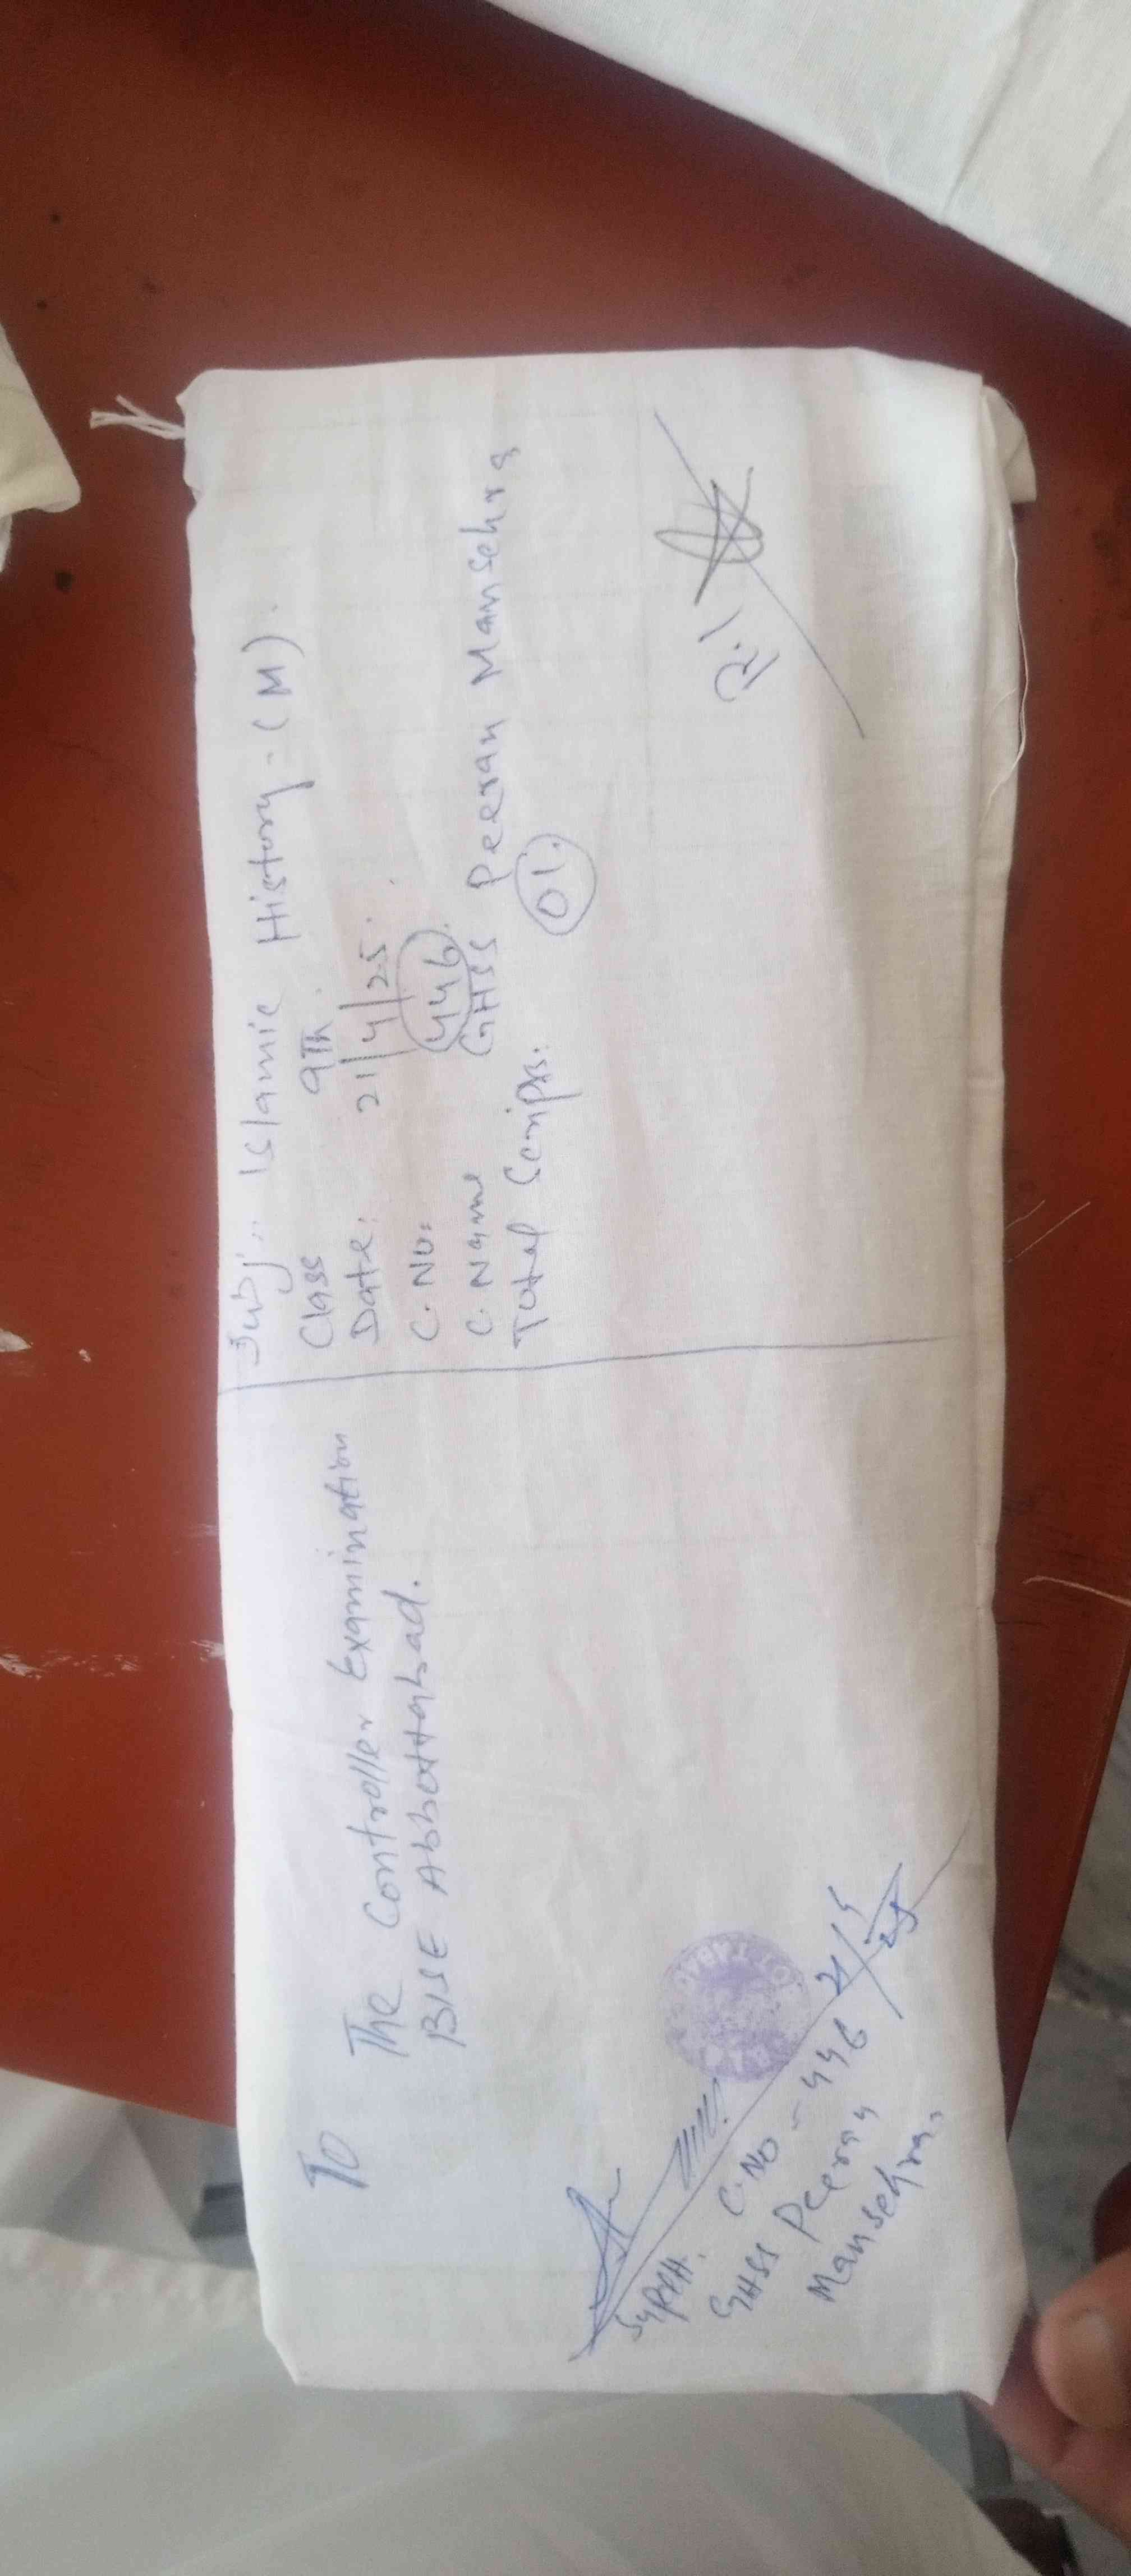 To
The Controller Examination
BISE Abbottabad.
Supdtt.
C.No - 446
GHSS Peeran
Mansehra.
21/4/25
Subj: Islamic History - (M).
Class 9Th.
Date: 21/4/25.
C. No: 446.
C. Name GHSS Peeran Mansehra
Total Scripts: 01.
R.I